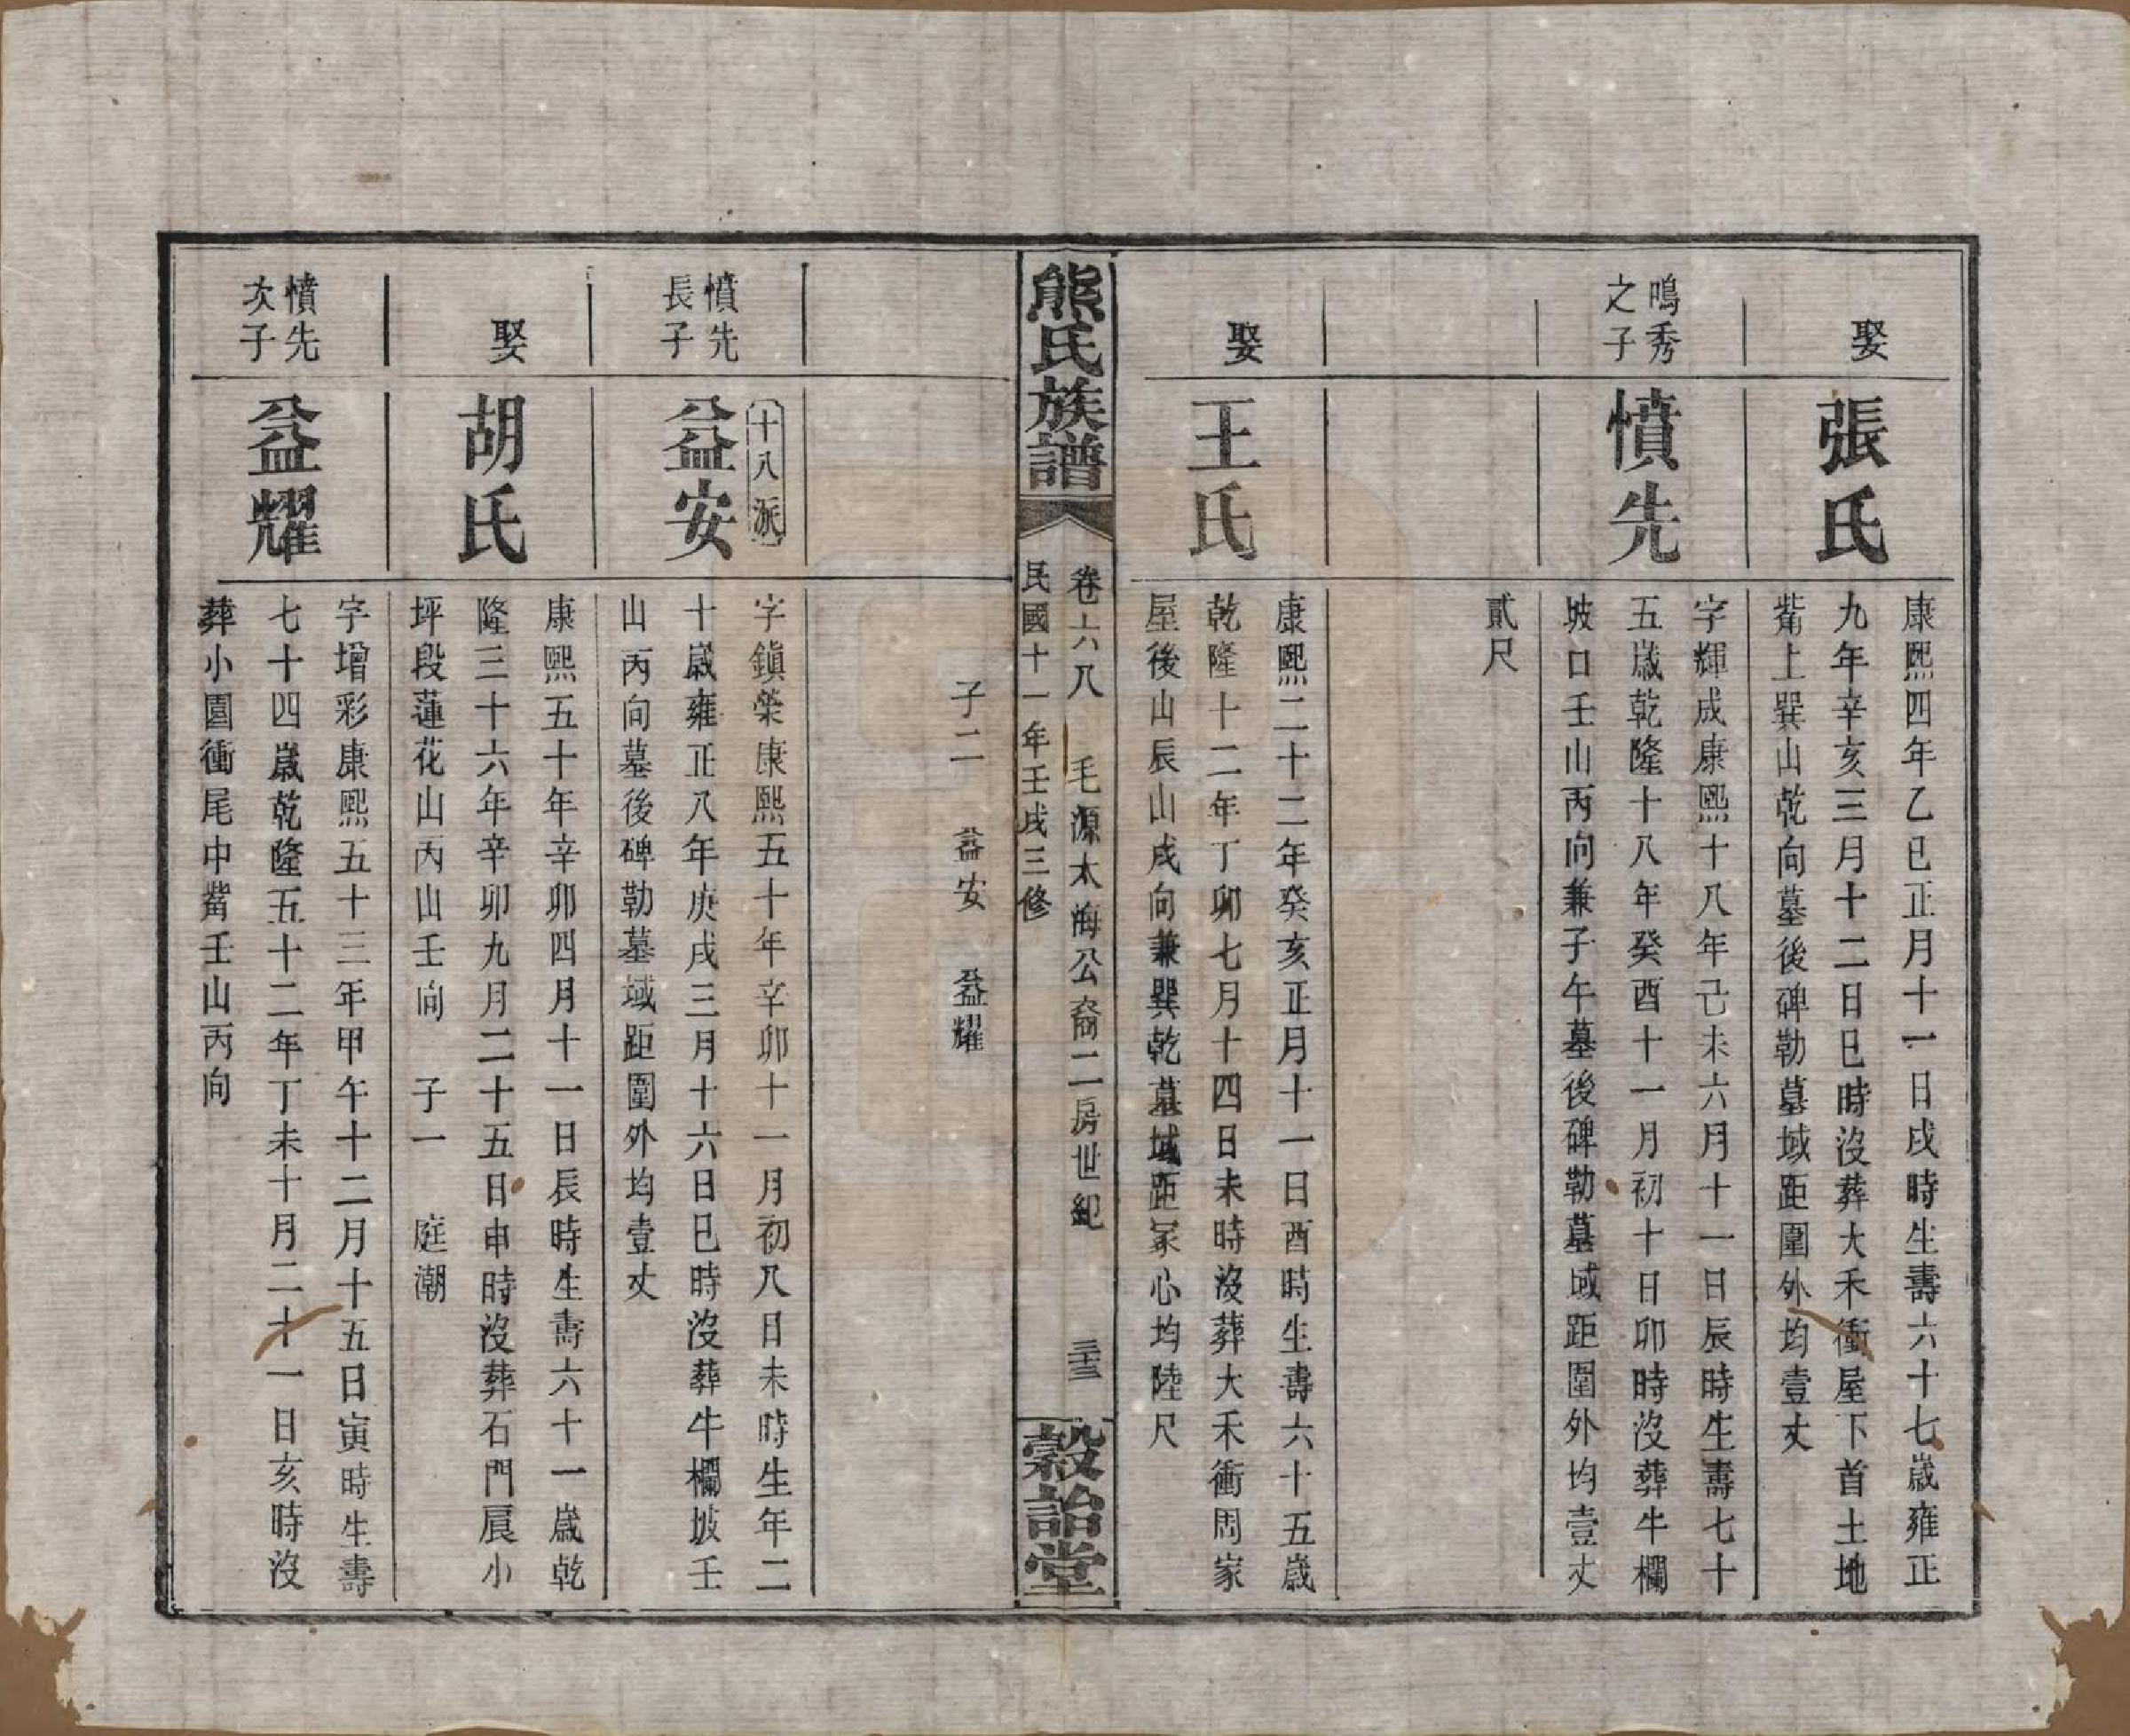 娶
張氏
康熙四年乙巳正月十一日戌時生壽六十七歲雍正
九年辛亥三月十二日巳時沒葬大禾衝屋下首土地
觜上巽山乾向墓後碑勒墓域距圍外均壹丈
鳴秀
之子
憤先
字輝成康熙十八年己未六月十一日辰時生壽七十
五歲乾隆十八年癸酉十一月初十日卯時沒葬牛欄
坡口壬山丙向兼子午墓後碑勒墓域距圍外均壹丈
貳尺
娶
王氏
康熙二十二年癸亥正月十一日酉時生壽六十五歲
乾隆十二年丁卯七月十四日未時沒葬大禾衝周家
屋後山辰山戌向兼巽乾墓域距冢心均陸尺
熊氏族譜
卷六八 毛源太海公裔二房世紀 三十三
民國十一年壬戌三修
穀詒堂
子二 益安 益耀
憤先
長子
十八派
益安
字鎮榮康熙五十年辛卯十一月初八日未時生年二
十歲雍正八年庚戌三月十六日巳時沒葬牛欄坡壬
山丙向墓後碑勒墓域距圍外均壹丈
娶
胡氏
康熙五十年辛卯四月十一日辰時生壽六十一歲乾
隆三十六年辛卯九月二十五日申時沒葬石門扆小
坪段蓮花山丙山壬向 子一 庭潮
憤先
次子
益耀
字增彩康熙五十三年甲午十二月十五日寅時生壽
七十四歲乾隆五十二年丁未十月二十一日亥時沒
葬小園衝尾中觜壬山丙向